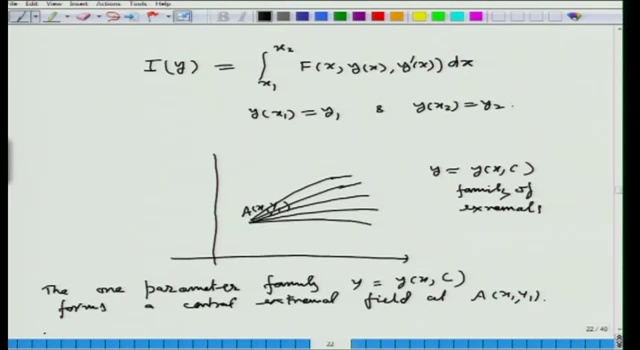 Edit View Insert Actions Tools Help
I(y) = ∫_{x₁}^{x₂} F(x, y(x), y'(x)) dx
y(x₁) = y₁ & y(x₂) = y₂.
y = y(x, C)
family of
exremals
A(x₁, y₁)
The one parameter family y = y(x, C)
forms a central extremal field at A(x₁, y₁).
22 / 40
22